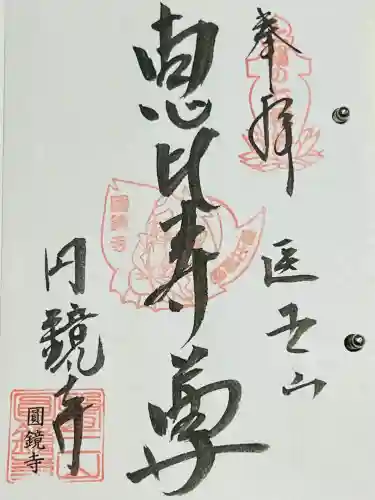 奉拝
医王山
恵比寿尊
円鏡寺
圓鏡寺
圓鏡寺